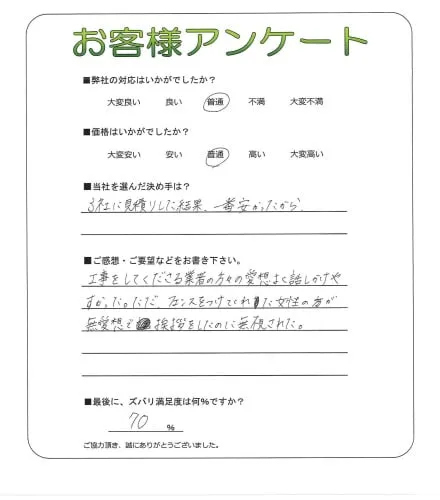 お客様アンケート
■弊社の対応はいかがでしたか?
大変良い 良い 普通 不満 大変不満
■価格はいかがでしたか?
大変安い 安い 普通 高い 大変高い
■当社を選んだ決め手は?
3社に見積りした結果、一番安かったから
■ご感想・ご要望などをお書き下さい。
工事をしてくださる業者の方々の愛想よく話しかけや
すかった。ただ、フェンスをつけてくれた女性の方が
無愛想で 挨拶をしたのに無視された。
■最後に、ズバリ満足度は何%ですか?
70 %
ご協力頂き、誠にありがとうございました。